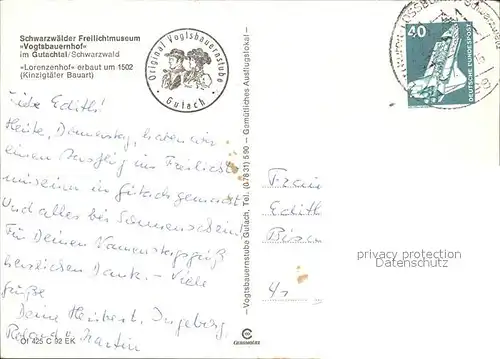 Schwarzwälder Freilichtmuseum
»Vogtsbauernhof«
im Gutachtal/Schwarzwald
»Lorenzenhof« erbaut um 1502
(Kinzigtäler Bauart)
Original Vogtsbauernstube
· Gutach ·
40
DEUTSCHE BUNDESPOST
Liebe Edith!
Heute, Donnerstag, haben wir
einen Ausflug ins Freilicht
museum in Gutach gemacht
Und alles bei Sonnenschein!
Für Deinen Namenstagsgruß
herzlichen Dank. – Viele
Grüße
Deine Heribert, Ingeborg,
Martin
Of 425 C 92 EK
-Vogtsbauernstube Gutach, Tel. (07831) 590 – Gemütliches Ausflugslokal-
Frau
Edith
privacy protection
Datenschutz